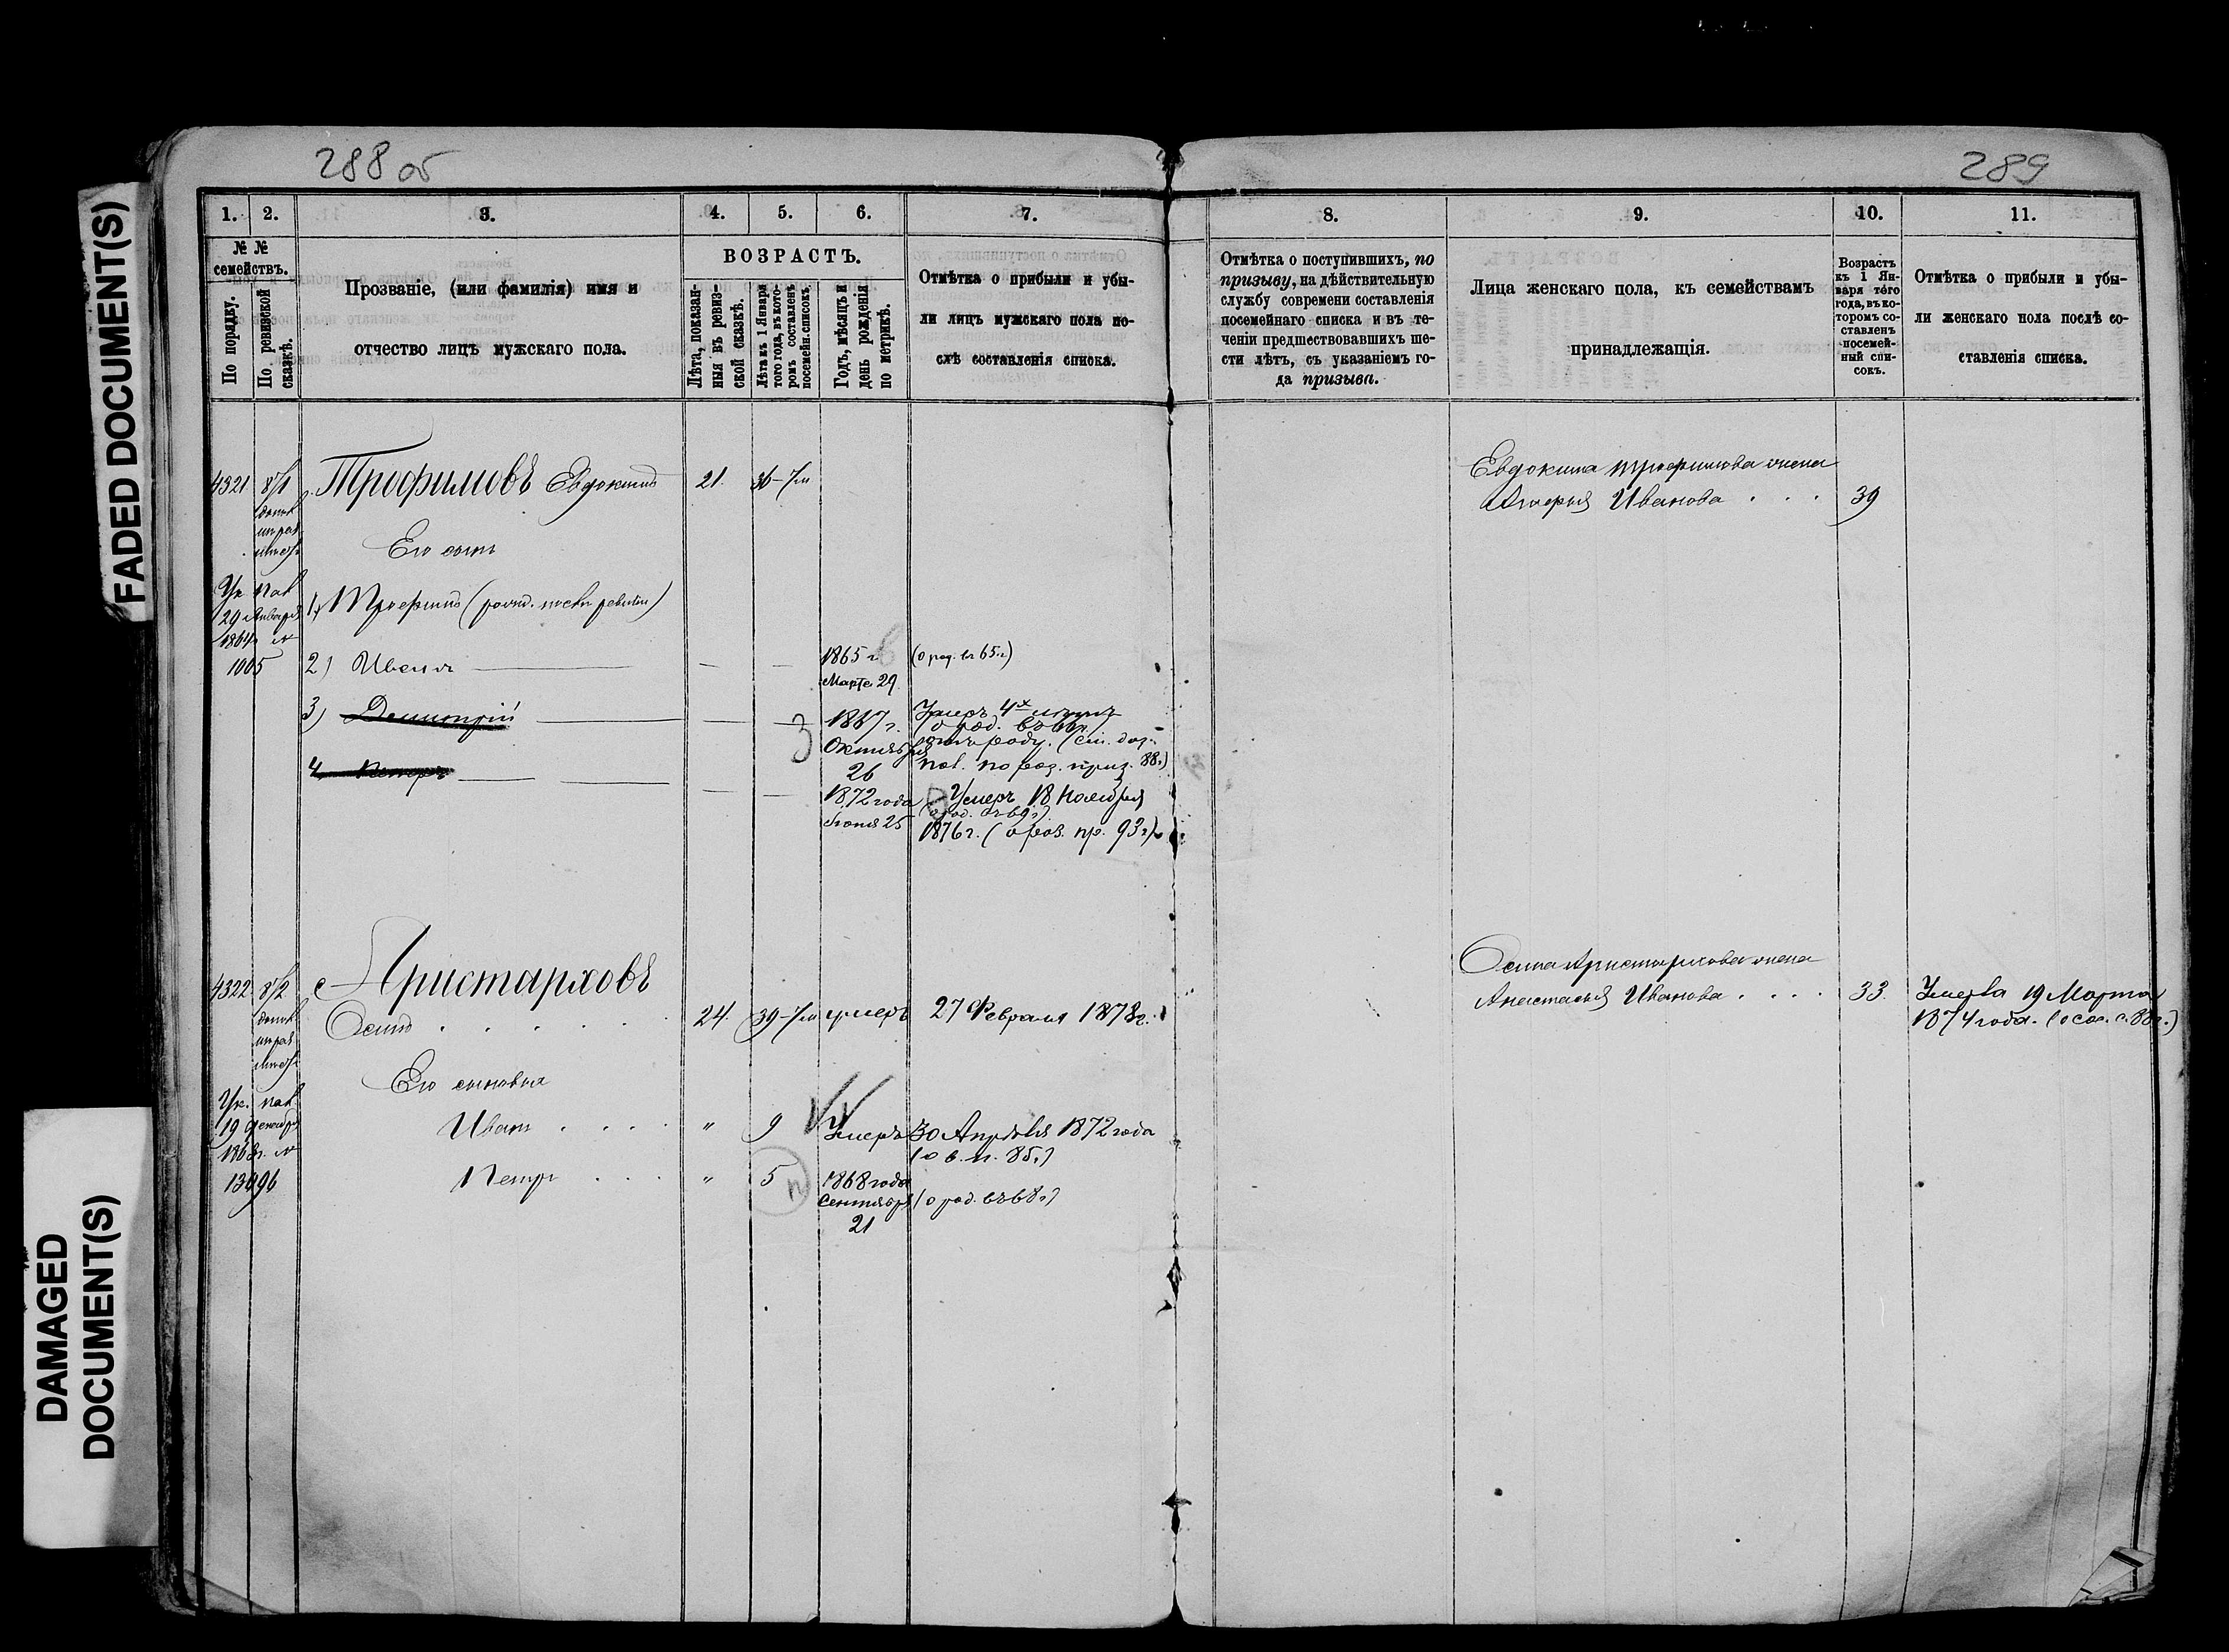 288 об
289
FADED DOCUMENT(S)
DAMAGED
DOCUMENT(S)
1. 2. 3. 4. 5. 6. 7. 8. 9. 10. 11.
№ №
семействъ.
По порядку.
По ревизской
сказкѣ.
Прозваніе, (или фамилія) имя и
отчество лицъ мужскаго пола.
ВОЗРАСТЪ.
Лѣта, показан-
ныя въ ревиз-
ской сказкѣ.
Лѣта къ 1 Января
того года, въ кото-
ромъ составленъ
посемейн. списокъ.
Годъ, мѣсяцъ и
день рожденія
по метрикѣ.
Отмѣтка о прибыли и убы-
ли лицъ мужскаго пола по-
слѣ составленія списка.
Отмѣтка о поступившихъ, по
призыву, на дѣйствительную
службу современи составленія
посемейнаго списка и въ те-
ченіи предшествовавшихъ ше-
сти лѣтъ, съ указаніемъ го-
да призыва.
Лица женскаго пола, къ семействамъ
принадлежащія.
Возрастъ
къ 1 Ян-
варя того
года, въ ко-
торомъ со-
ставленъ
посемей-
ный спи-
сокъ.
Отмѣтка о прибыли и убы-
ли женскаго пола послѣ со-
ставленія списка.
4321 8/1 Трофимовъ Евдокимъ 21. 36
Евдокима Трофимова жена
Иванова 39
Его сынъ
29 Января
1864
1005
1) Трофимъ (рожд. послѣ ревизіи)
2) Иванъ
1865 г.
Марта 29
(о род. въ 65 г.)
3) Димитрій
1867 г.
Октября
26
Умеръ
4 Петръ
1872 года
Іюня 25
Умеръ 18 Ноября
1876 г. (о роз. пр. 93 г.)
4322 8/2 Аристарховъ
Осипъ 24. 39 умеръ 27 Февраля 1878 г.
Осипа Аристархова жена
Анастасья Иванова 33.
Умерла 19 Марта
1874 года.
Его сыновья
Иванъ " 9 Умеръ 30 Апрѣля 1872 года
(о в. п. 85 г.)
Петръ " 5 1868 года
Сентября (о род. въ 68 г.)
21
Ук.
19
13496